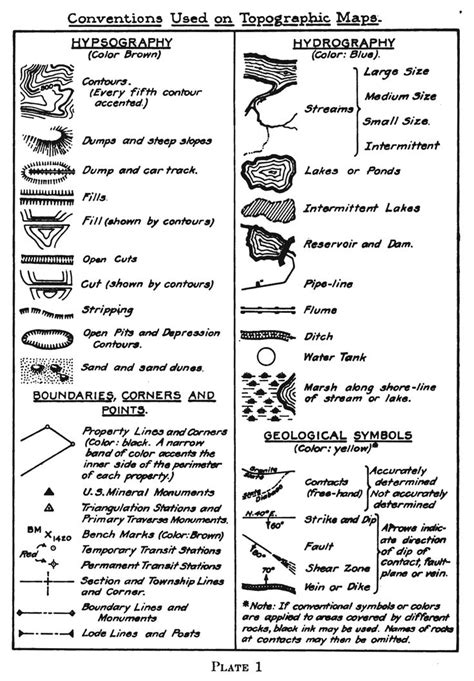 Conventions Used on Topographic Maps.
HYPSOGRAPHY
(Color Brown)
800
Contours.
(Every fifth contour
accented.)
Dumps and steep slopes
Dump and car track.
Fills.
Fill (shown by contours)
Open Cuts
Cut (shown by contours)
Stripping
Open Pits and Depression
Contours.
Sand and sand dunes.
BOUNDARIES, CORNERS AND
POINTS.
Property Lines and Corners
(Color: black. A narrow
band of color accents the
inner side of the perimeter
of each property.)
U.S. Mineral Monuments
Triangulation Stations and
Primary Traverse Monuments.
BM X 1420 Bench Marks (Color: Brown)
Red
Temporary Transit Stations
Permanent Transit Stations
Section and Township Lines
and Corner.
Boundary Lines and
Monuments
Lode Lines and Posts
HYDROGRAPHY
(Color: Blue).
Streams
Large Size
Medium Size
Small Size.
Intermittent
Lakes or Ponds
Intermittent Lakes
Reservoir and Dam.
Pipe-line
Flume
Ditch
Water Tank
Marsh along shore-line
of stream or lake.
GEOLOGICAL SYMBOLS
(Color: yellow)*
Granite
Diabase
Contacts
(free-hand)
Accurately
determined
Not accurately
determined
N.40°E.
60°
Strike and Dip
60°
Fault
Shear Zone
70°
Vein or Dike
Arrows indic-
ate direction
of dip of
contact, fault-
plane or vein.
*Note: If conventional symbols or colors
are applied to areas covered by different
rocks, black ink may be used. Names of rocks
at contacts may then be omitted.
PLATE 1